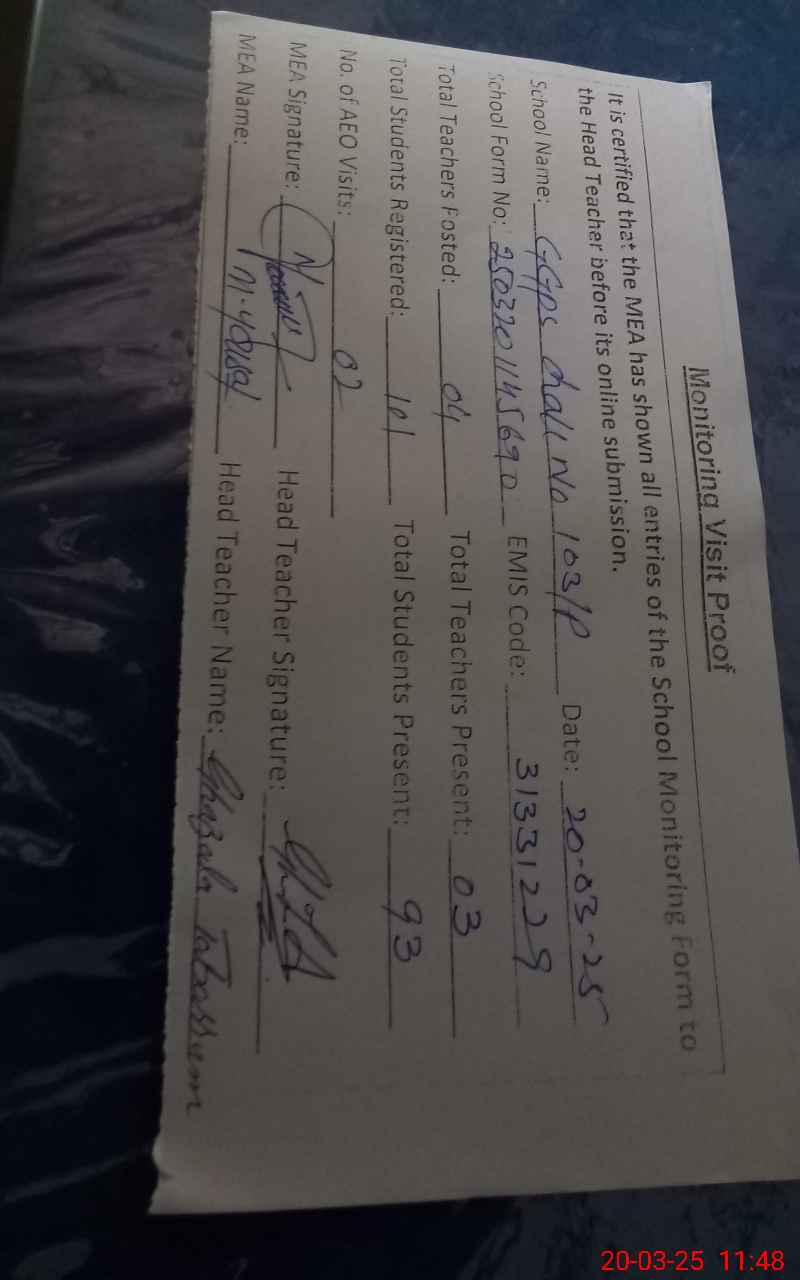 Monitoring Visit Proof
It is certified that the MEA has shown all entries of the School Monitoring Form to
the Head Teacher before its online submission.
School Name: GGPS Chak No 103/P Date: 20-03-25
School Form No: 250320114569 EMIS Code: 31331229
Total Teachers Posted: 04 Total Teachers Present: 03
Total Students Registered: 101 Total Students Present: 93
No. of AEO Visits: 02
MEA Signature: Head Teacher Signature:
MEA Name: M. Yousaf Head Teacher Name: Ghazala Tabassum
20-03-25 11:48